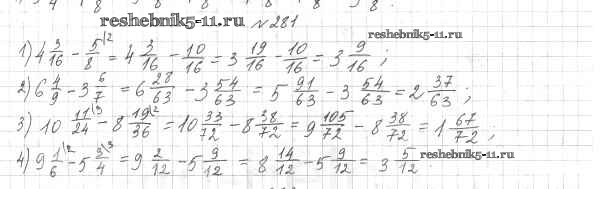 reshebnik5-11.ru № 281
1) 4 3/16 - 5/8 |2 = 4 3/16 - 10/16 = 3 19/16 - 10/16 = 3 9/16 ;
2) 6 4/9 - 3 6/7 = 6 28/63 - 3 54/63 = 5 91/63 - 3 54/63 = 2 37/63 ;
3) 10 11/24 |3 - 8 19/36 |2 = 10 33/72 - 8 38/72 = 9 105/72 - 8 38/72 = 1 67/72 ;
4) 9 1/6 |2 - 5 3/4 |3 = 9 2/12 - 5 9/12 = 8 14/12 - 5 9/12 = 3 5/12 . reshebnik5-11.ru